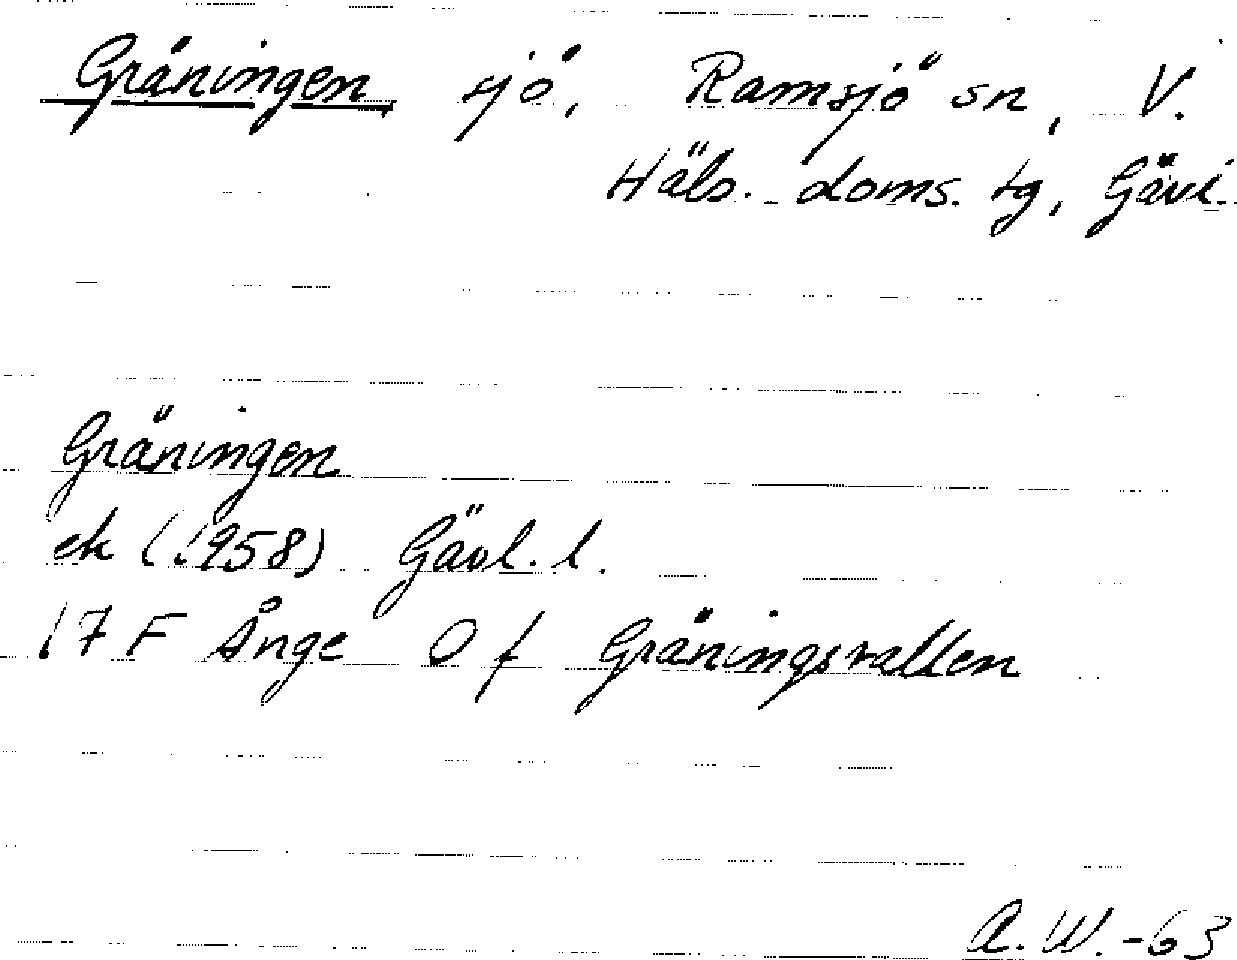 Gräningen sjö, Ramsjö sn, V.
Häls. doms. tg, Gävl.
Gräningen
ek (1958) Gävl. l.
17 F Ånge O f Gräningsvallen
A.W.-63